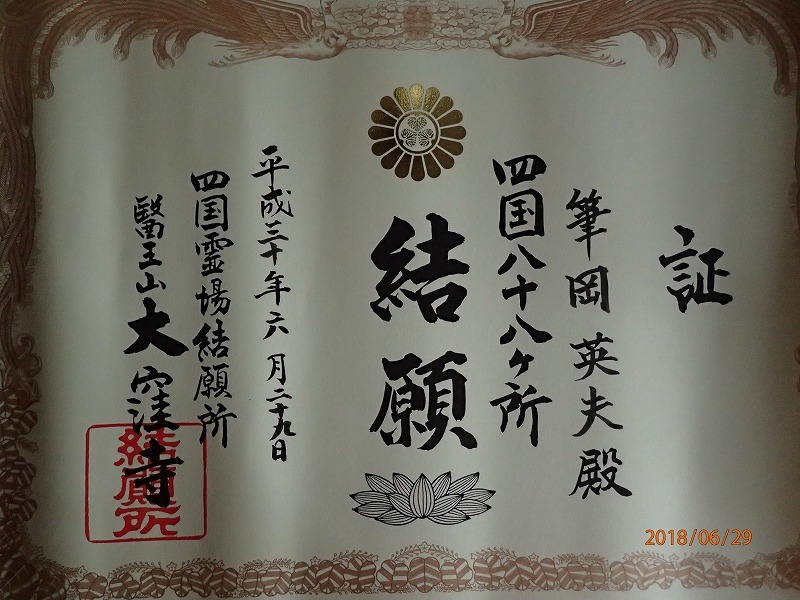 証
筆岡英夫殿
四国八十八ヶ所
結願
平成三十年六月二十九日
四国霊場結願所
醫王山大窪寺
結願所
2018/06/29